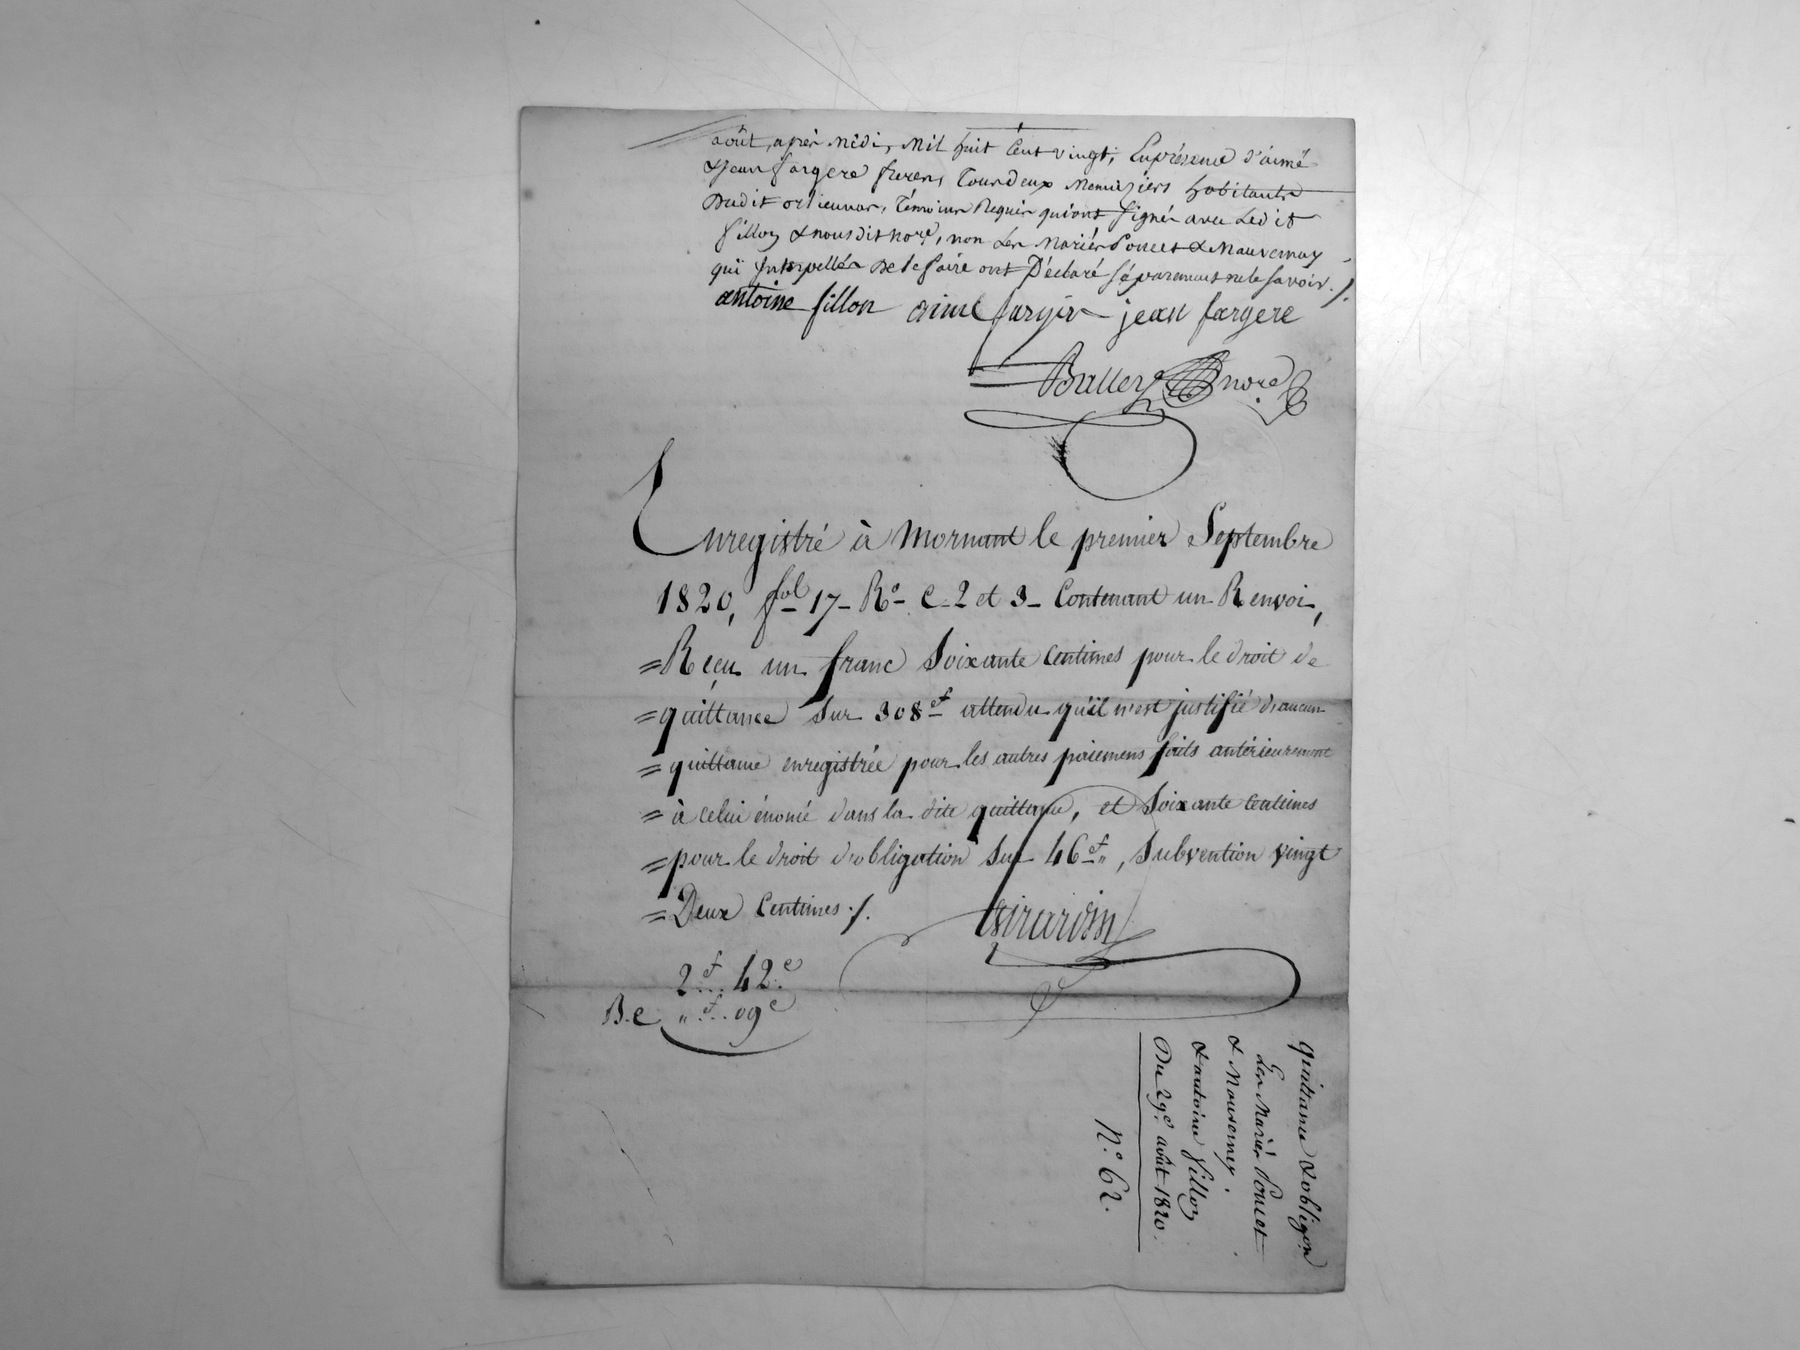 août, après Midi, Mil huit Cent vingt, En présence d'aimé
& jean fargere freres, Tous deux Menuisiers habitants
Dudit orlienas, Témoins Requis qui ont signé avec Ledit
fillon & nous dit no.re, non Les Mariés Poncet & Mauvernay
qui Interpellés De le faire ont Déclaré séparement ne le savoir ./.
antoine fillon aimé fargere jean fargere
no.re
Enregistré à Mornant le premier Septembre
1820, fol 17 R° C. 2 et 3 Contenant un Renvoi,
= Reçu un franc Soixante Centimes pour le droit de
= quittance sur 308 f attendu qu'il n'est justifié d'aucun
= quittance enregistrée pour les autres paiemens faits antérieurement
= à celui énoncé dans la dite quittance, et Soixante Centimes
= pour le droit d'obligation sur 46 f ", Subvention vingt
= Deux Centimes ./.
Girardin
2 f .. 42 c
B.e " f .. 09 c
quittance & obligon
des Mariés Poncet
& Mauverney.
& antoine fillon
Du 29e août 1820.
N° 62.